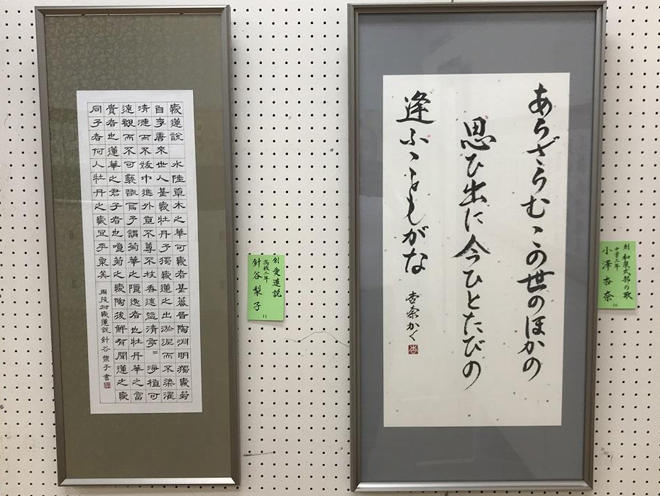 愛蓮說 水陸草木之華可愛者甚蕃晉陶淵明獨愛菊
自李唐來世人甚愛牡丹予獨愛蓮之出淤泥而不染濯
清漣而不妖中通外直不蔓不枝香遠益清亭〻淨植可
遠觀而不可褻翫焉予謂菊華之隱逸者也牡丹華之富
貴者也蓮華之君子者也噫菊之愛陶後鮮有聞蓮之愛
同予者何人牡丹之愛宜乎衆矣
周茂叔愛蓮説 針谷梨子書
創 愛蓮説
針谷梨子
11
あらざらむこの世のほかの
思ひ出に今ひとたびの
逢ふこともがな
杏奈かく
創 和泉式部の歌
小澤杏奈